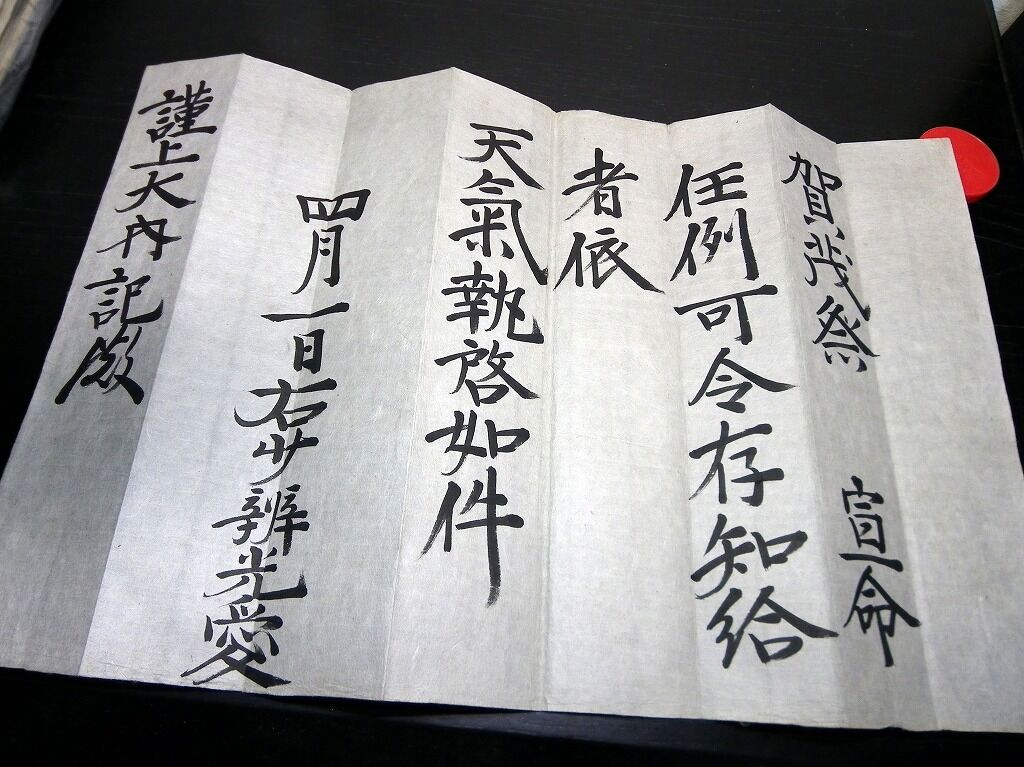 賀茂祭 宣命
任例可令存知給
者依
天氣執啓如件
四月一日右少辨光愛
謹上大内記殿